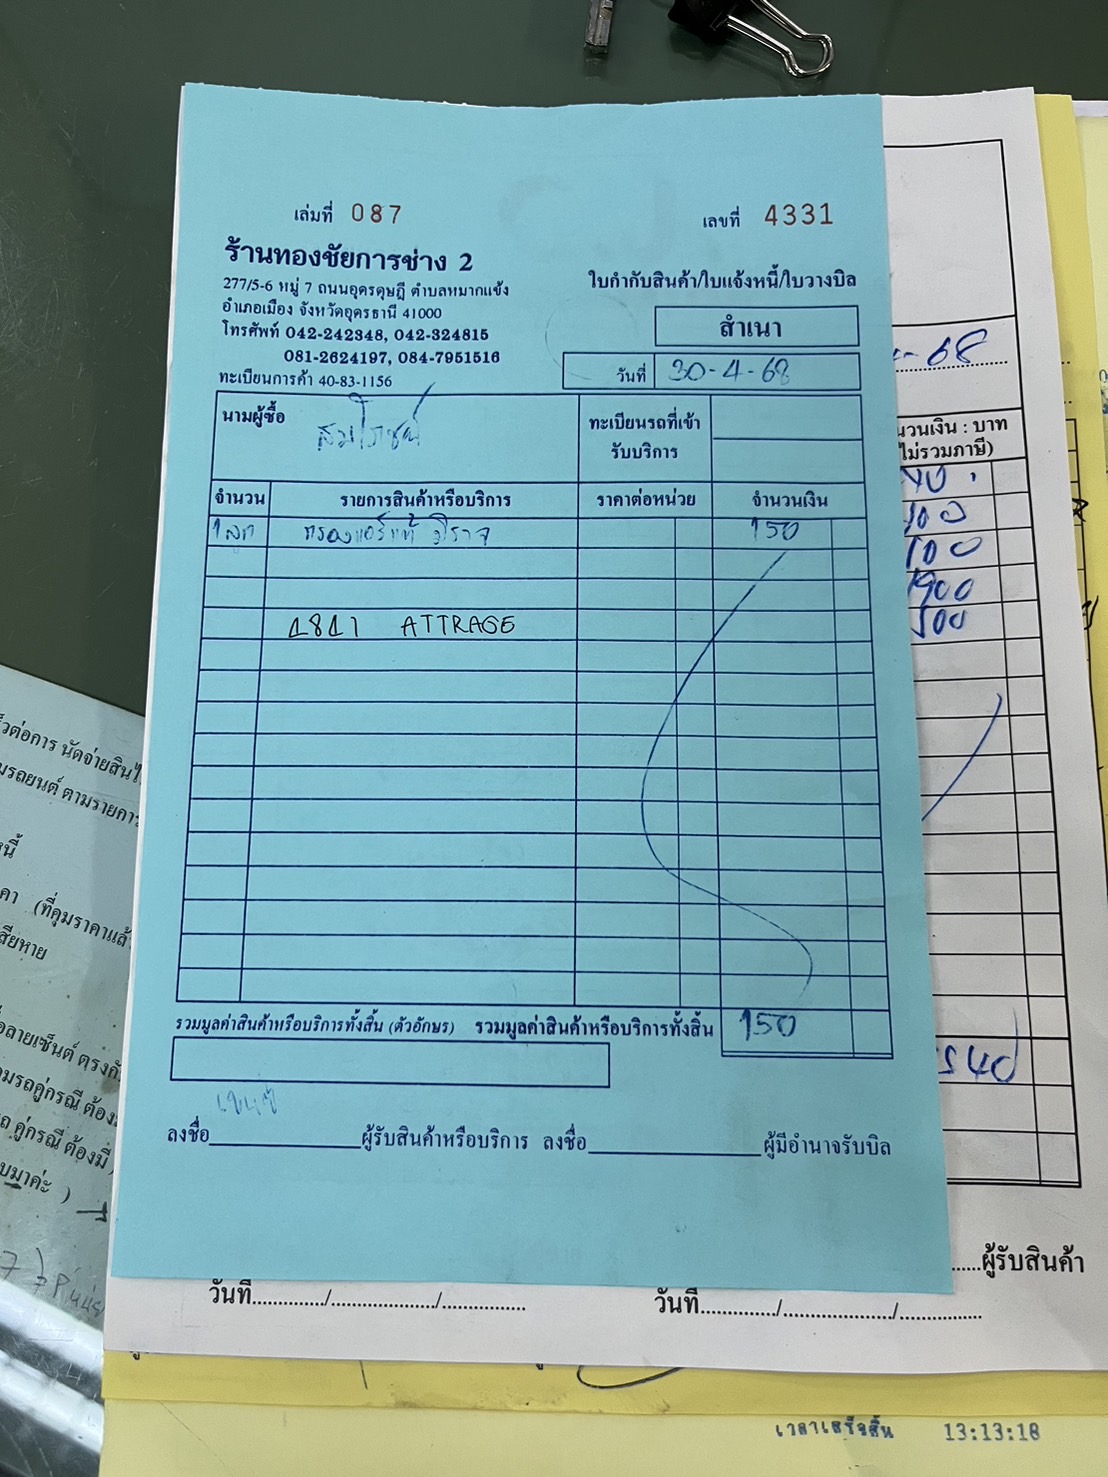 เล่มที่ 087
เลขที่ 4331
ร้านทองชัยการช่าง 2
277/5-6 หมู่ 7 ถนนอุดรดุษฎี ตำบลหมากแข้ง
อำเภอเมือง จังหวัดอุดรธานี 41000
โทรศัพท์ 042-242348, 042-324815
081-2624197, 084-7951516
ทะเบียนการค้า 40-83-1156
ใบกำกับสินค้า/ใบแจ้งหนี้/ใบวางบิล
สำเนา
วันที่ 30-4-68
นามผู้ซื้อ
ทะเบียนรถที่เข้า
รับบริการ
จำนวน รายการสินค้าหรือบริการ ราคาต่อหน่วย จำนวนเงิน
1 ลูก กรองแอร์แท้ มิราจ 150
ATTRAGE
รวมมูลค่าสินค้าหรือบริการทั้งสิ้น (ตัวอักษร) รวมมูลค่าสินค้าหรือบริการทั้งสิ้น 150
ลงชื่อ ผู้รับสินค้าหรือบริการ ลงชื่อ ผู้มีอำนาจรับบิล
-68
นวนเงิน : บาท
ไม่รวมภาษี)
100
900
ผู้รับสินค้า
วันที่............/................../..............
วันที่............/................../..............
เวลาเสร็จสิ้น 13:13:18
วต่อการ นัดจ่ายสิน
มรถยนต์ ตามรายการ
คา (ที่คุมราคาแล้
สียหาย
ลายเซ็นต์ ตรงกั
มรถคู่กรณี ต้อง
ถ คู่กรณี ต้องมี
บมาค่ะ )